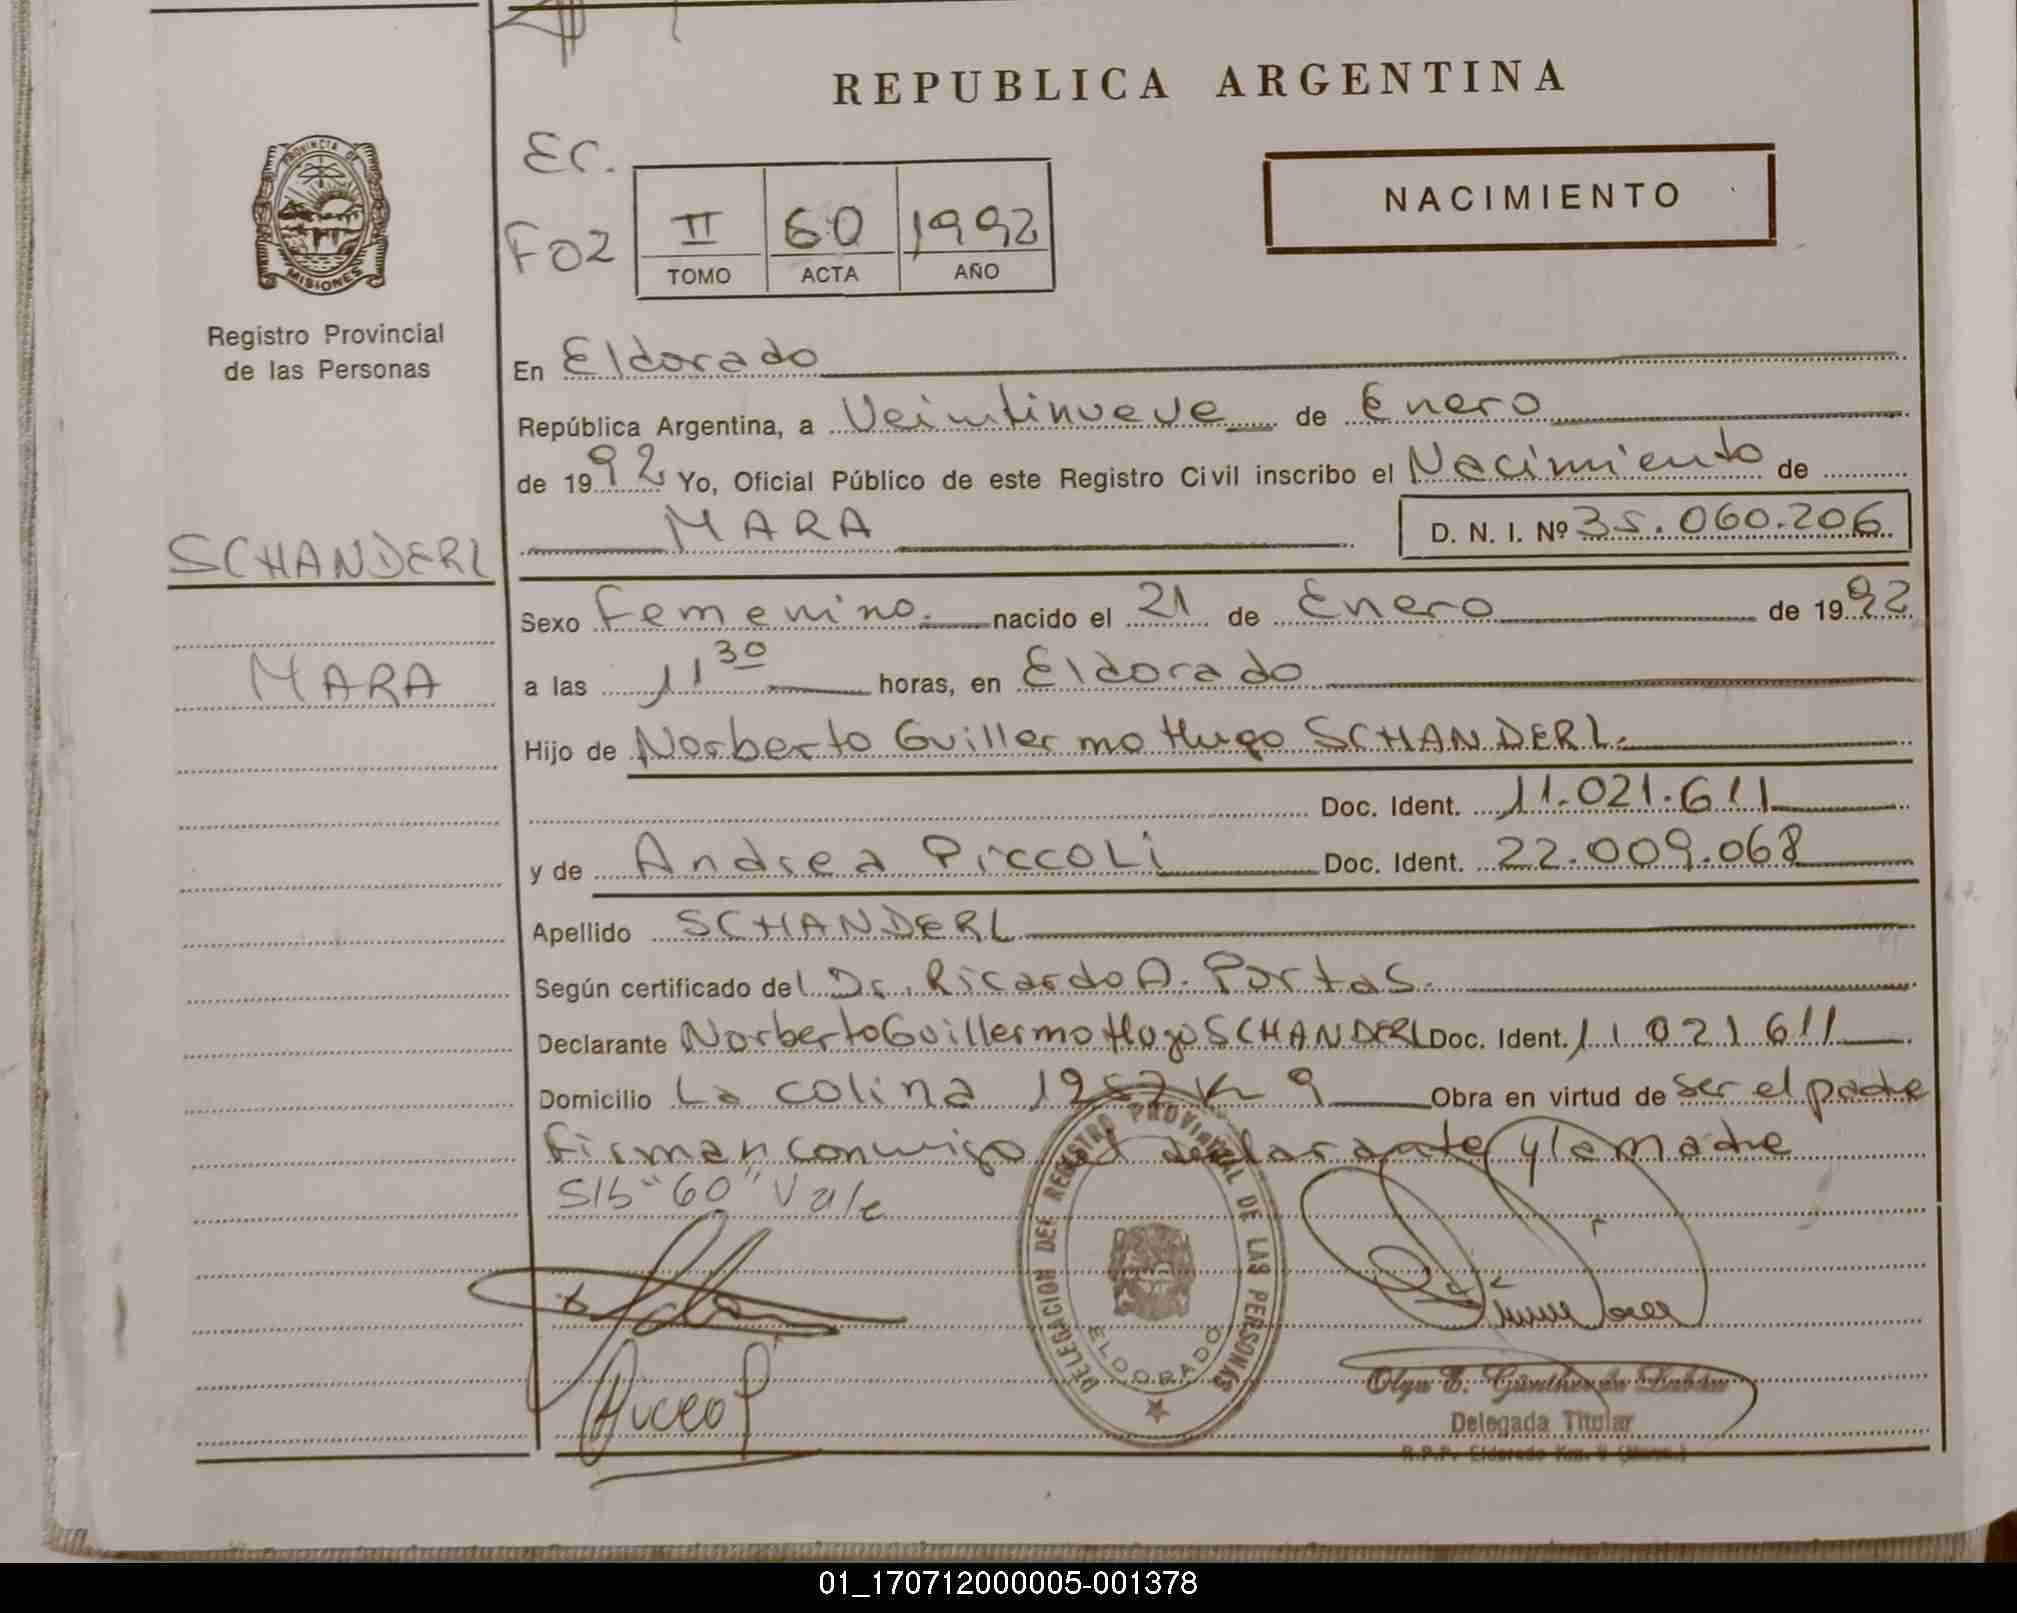 REPUBLICA ARGENTINA
PROVINCIA DE
MISIONES
Registro Provincial
de las Personas
EC.
F02
II 60 1992
TOMO ACTA AÑO
NACIMIENTO
En Eldorado
República Argentina, a Veintinueve de Enero
de 1992 Yo, Oficial Público de este Registro Civil inscribo el Nacimiento de
MARA D. N. I. Nº 35.060.206
SCHANDERL
MARA
Sexo Femenino. nacido el 21 de Enero de 1992
a las 11 30 horas, en Eldorado
Hijo de Norberto Guillermo Hugo SCHANDERL.
Doc. Ident. 11.021.611
y de Andrea PiccoLi Doc. Ident. 22.009.068
Apellido SCHANDERL
Según certificado del Dr. Ricardo A. Portas.
Declarante Norberto Guillermo Hugo SCHANDERL Doc. Ident. 11 021 611
Domicilio La colina 1257 K 9 Obra en virtud de ser el padre
firman conmigo el declarante y la madre
S/b "60" Vale
DELEGACION DEL REGISTRO PROVINCIAL DE LAS PERSONAS
ELDORADO
Olga E. Günther de
Delegada Titular
R.P.P. Eldorado Km. 9
01_170712000005-001378